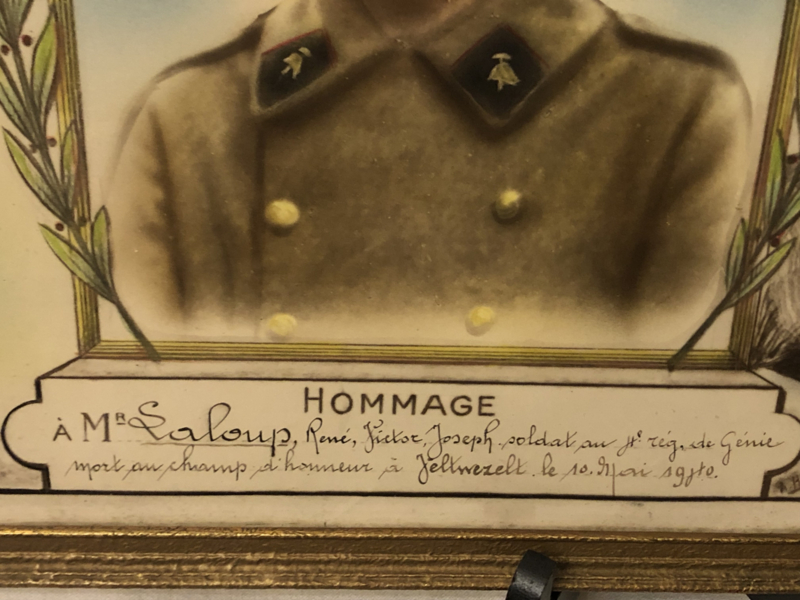 HOMMAGE
À Mᴿ Laloup, René, Victor, Joseph soldat au 4ᵉ rég. de Génie
mort au champ d'honneur à Veltwezelt le 10 Mai 1940.